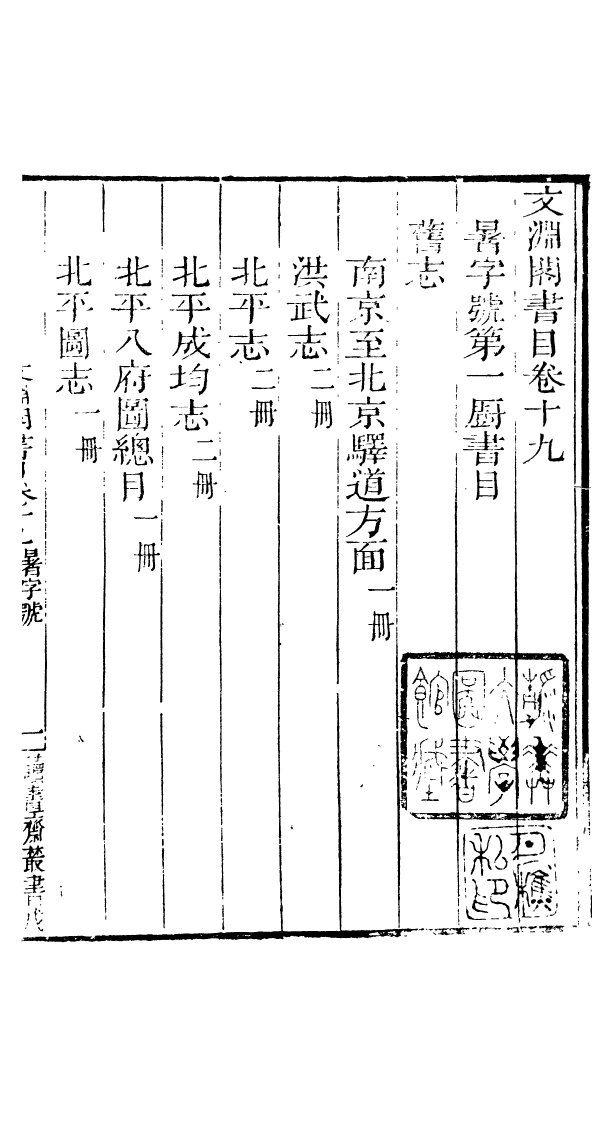 文淵閣書目卷十九
暑字號第一廚書目
舊志
南京至北京驛道方面一冊
洪武志二冊
北平志二冊
北平成均志二冊
北平八府圖總目一冊
北平圖志一冊
文淵閣書目卷十九 暑字號 一 讀畫齋叢書戊
圖書
館
私印